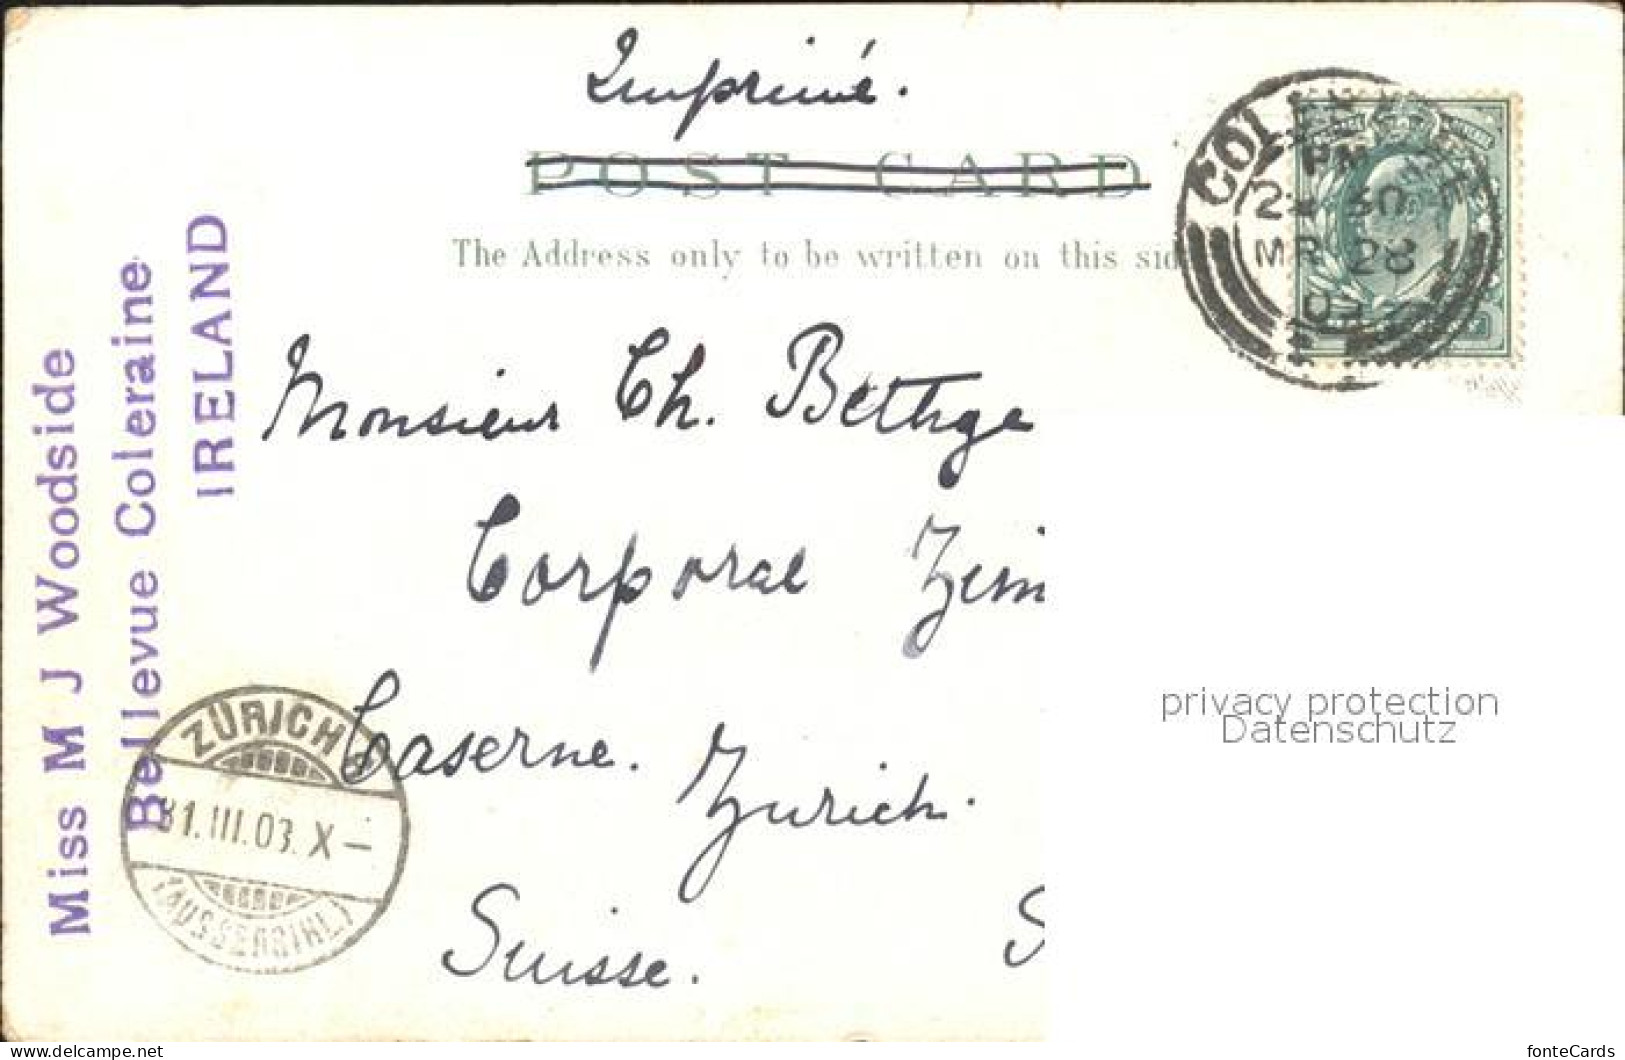 Imprimé.
POST CARD
The Address only to be written on this sid
COLERAINE
PM
2 30
MR 28
03
Monsieur Ch. Bethge
Corporal Zim
Caserne. Zurich.
Suisse. S
Miss M J Woodside
Bellevue Coleraine
IRELAND
ZÜRICH
31.III.03.X–
(AUSSERSIHL)
privacy protection
Datenschutz
www.delcampe.net
fonteCards